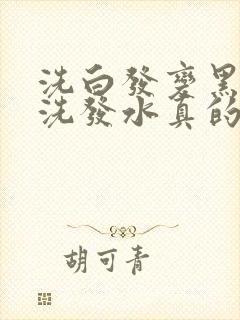 洗白發變黑
洗發水真的
胡可青